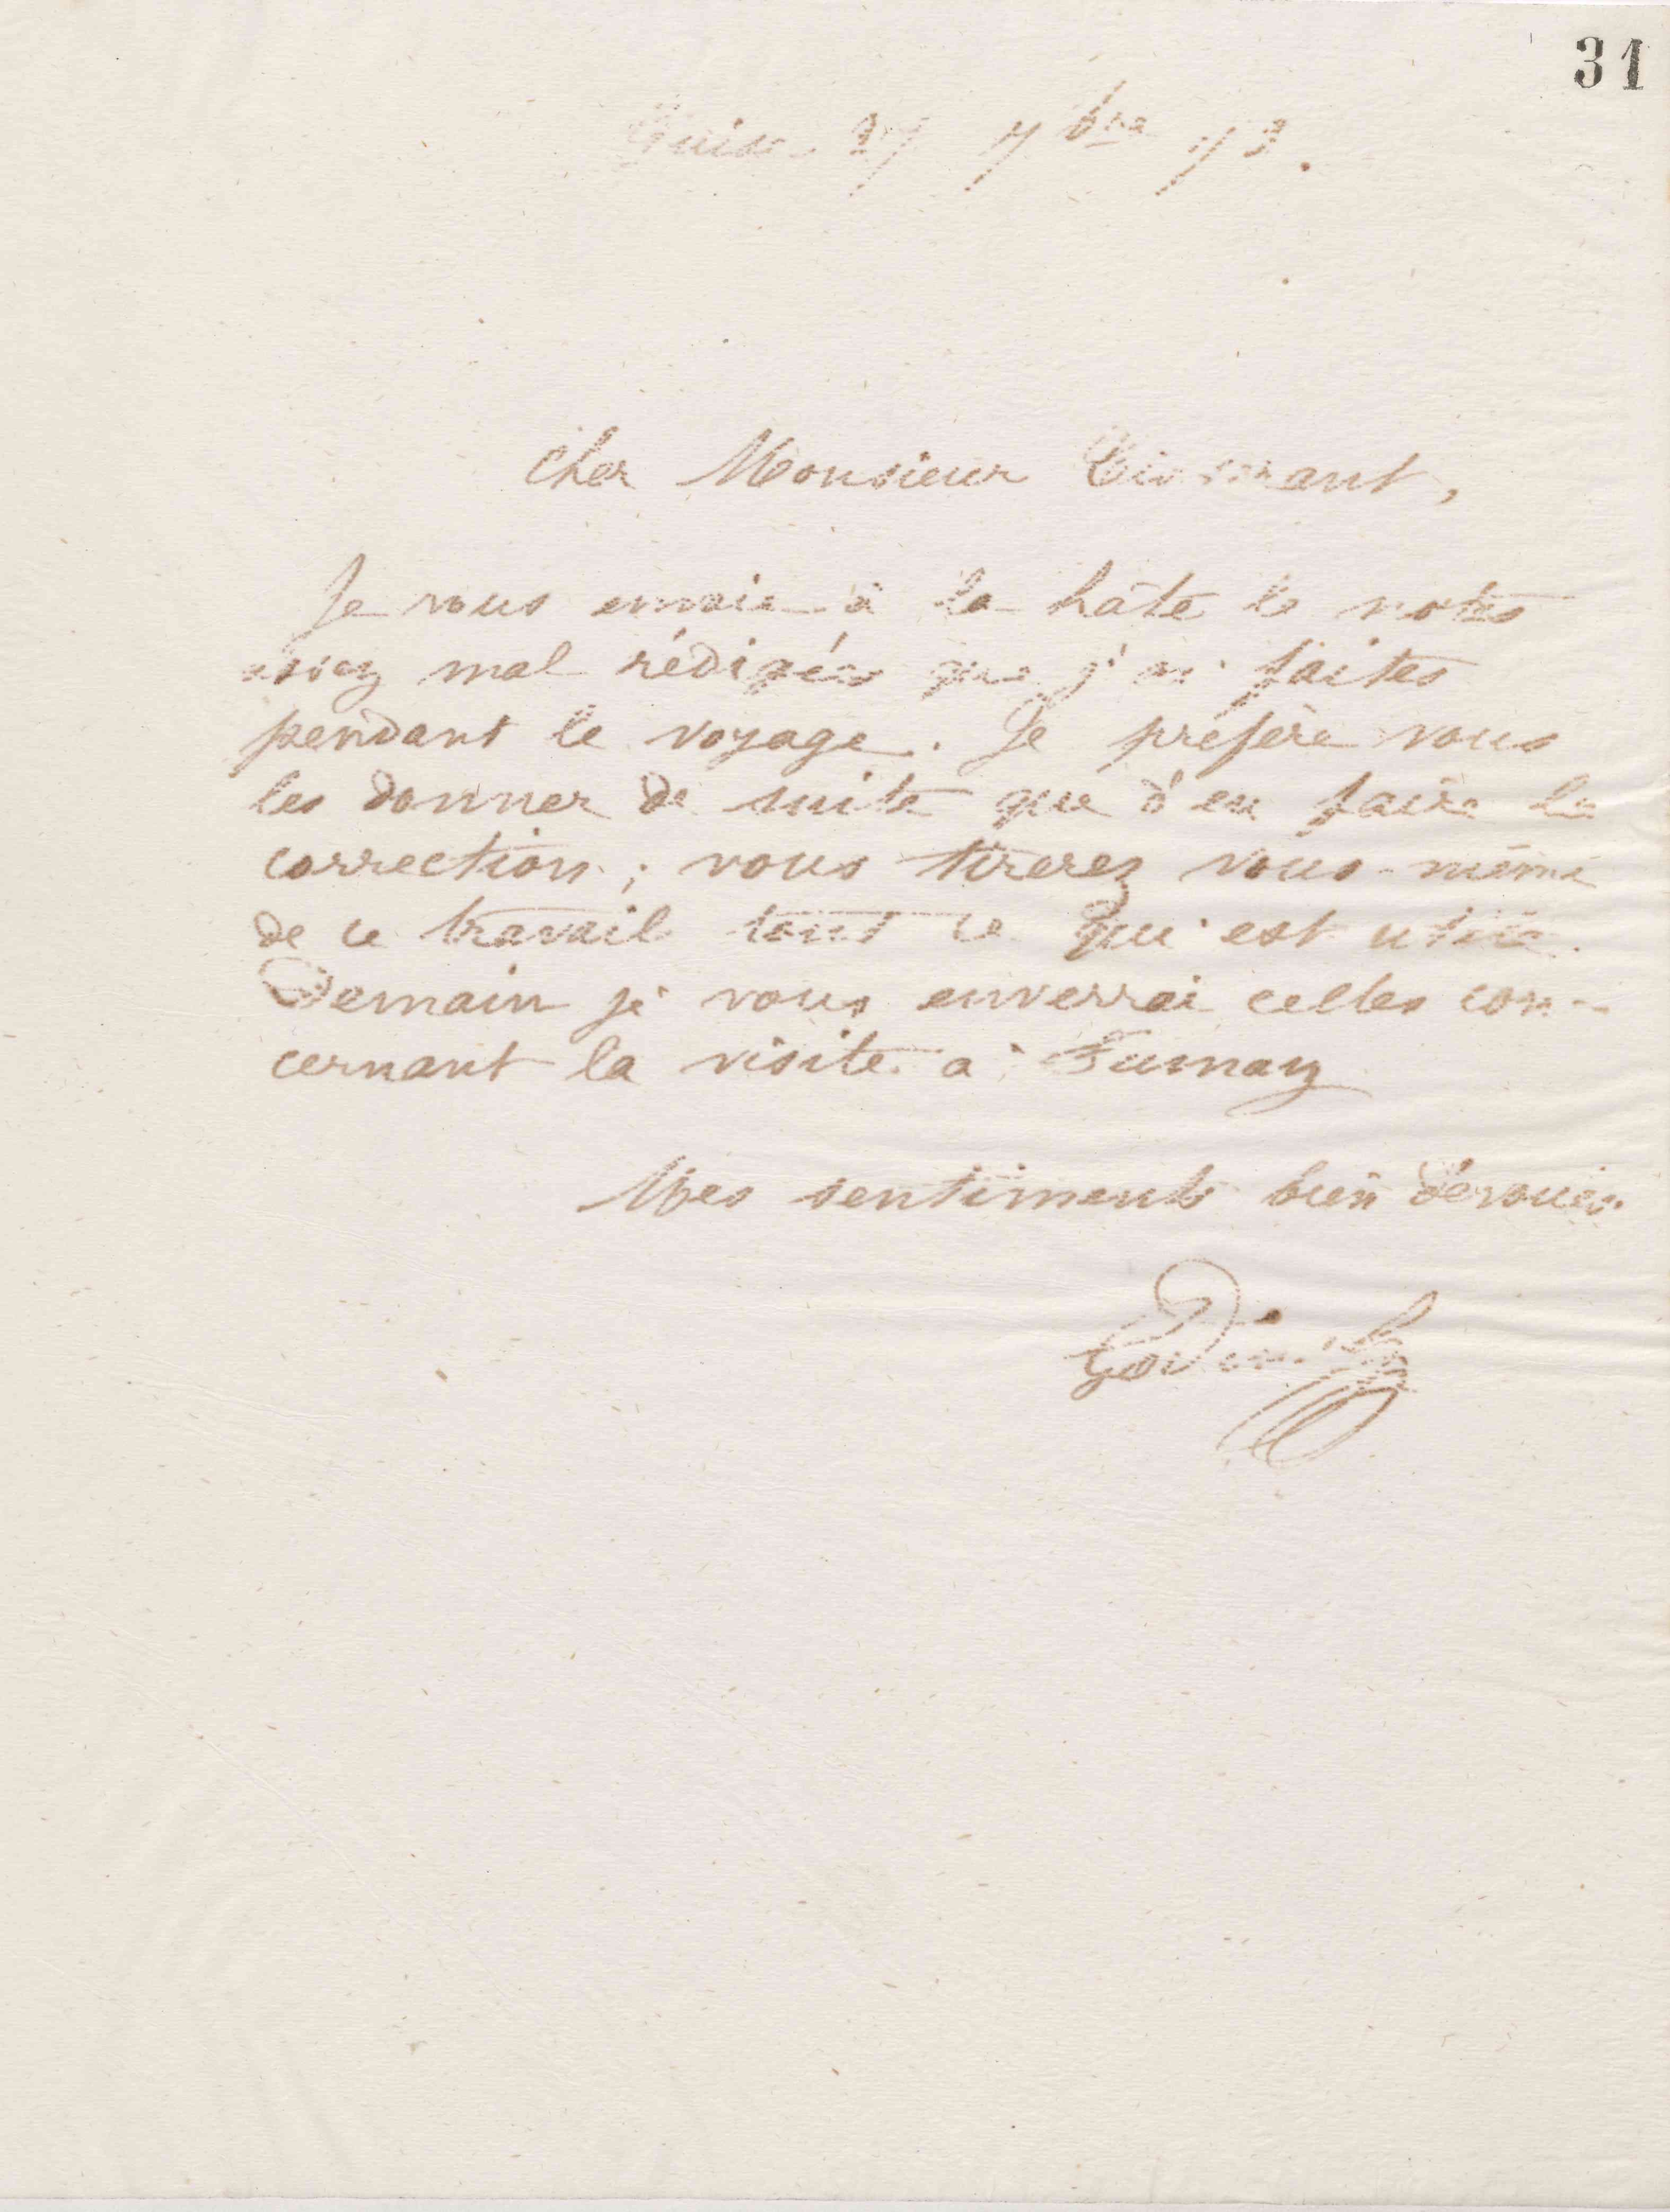 31
Guise 27 7bre 73.
Cher Monsieur Tisserant,
Je vous envoie à la hâte les notes
assez mal rédigées que j'ai faites
pendant le voyage. Je préfère vous
les donner de suite que d'en faire la
correction ; vous tirerez vous-même
de ce travail tout ce qui est utile.
Demain je vous enverrai celles con-
cernant la visite à Fumay
Mes sentiments bien dévoués.
Godin